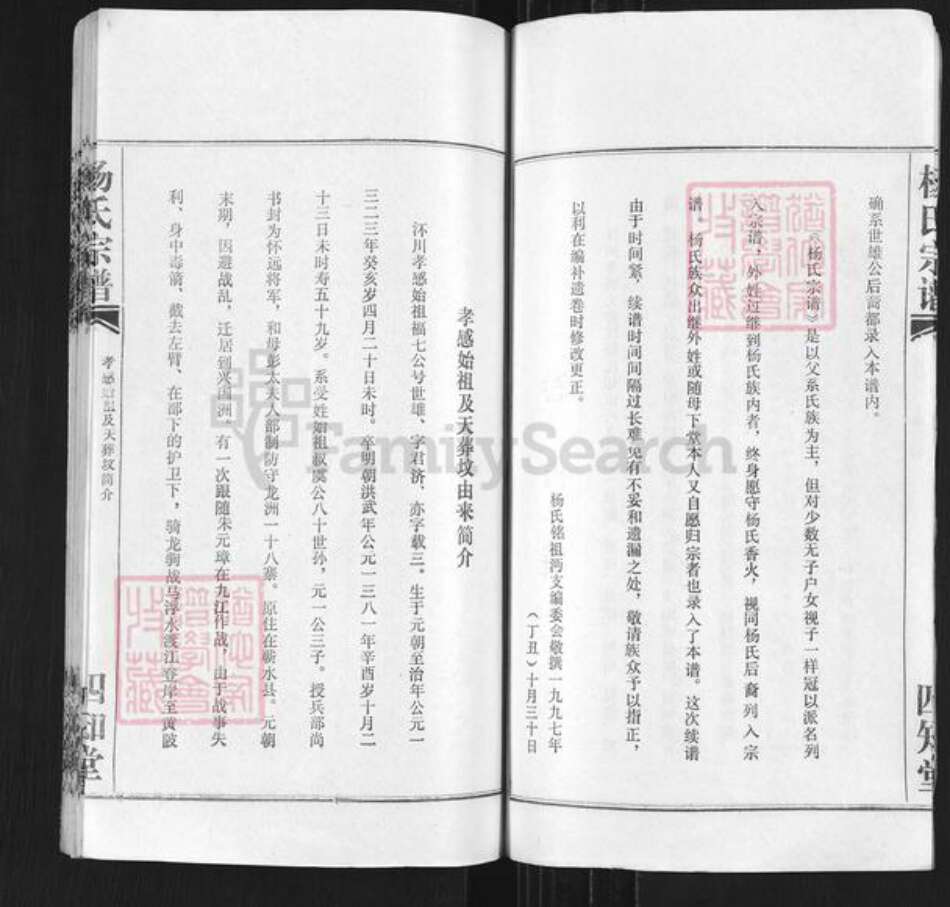 杨氏宗谱
四知堂
确系世雄公后裔都录入本谱内。
《杨氏宗谱》是以父系氏族为主，但对少数无子户女视子一样冠以派名列
入宗谱，外姓过继到杨氏族内者，终身愿守杨氏香火，视同杨氏后裔列入宗
谱。杨氏族众出继外姓或随母下堂本人又自愿归宗者也录入了本谱。这次续谱
由于时间紧，续谱时间间隔过长难免有不妥和遗漏之处，敬请族众予以指正，
以利在编补遗卷时修改更正。
杨氏铭祖沔支编委会敬撰一九九七年
（丁丑）十月三十日
孝感始祖及天葬坟由来简介
沔川孝感始祖福七公号世雄、字君济、亦字载三。生于元朝至治年公元一
三二三年癸亥岁四月二十日未时。卒明朝洪武年公元一三八一年辛酉岁十月二
十三日未时寿五十九岁。系受姓始祖叔虞公八十世孙，元一公三子。授兵部尚
书封为怀远将军，和母彭太夫人部制防守龙洲一十八寨。原住在蕲水县。元朝
末期，因避战乱，迁居到兴国洲。有一次跟随朱元璋在九江作战，由于战事失
利、身中毒箭、截去左臂、在部下的护卫下，骑龙驹战马浮水渡江登岸至黄陂
杨氏宗谱
孝感始祖及天葬坟简介
四知堂
FamilySearch